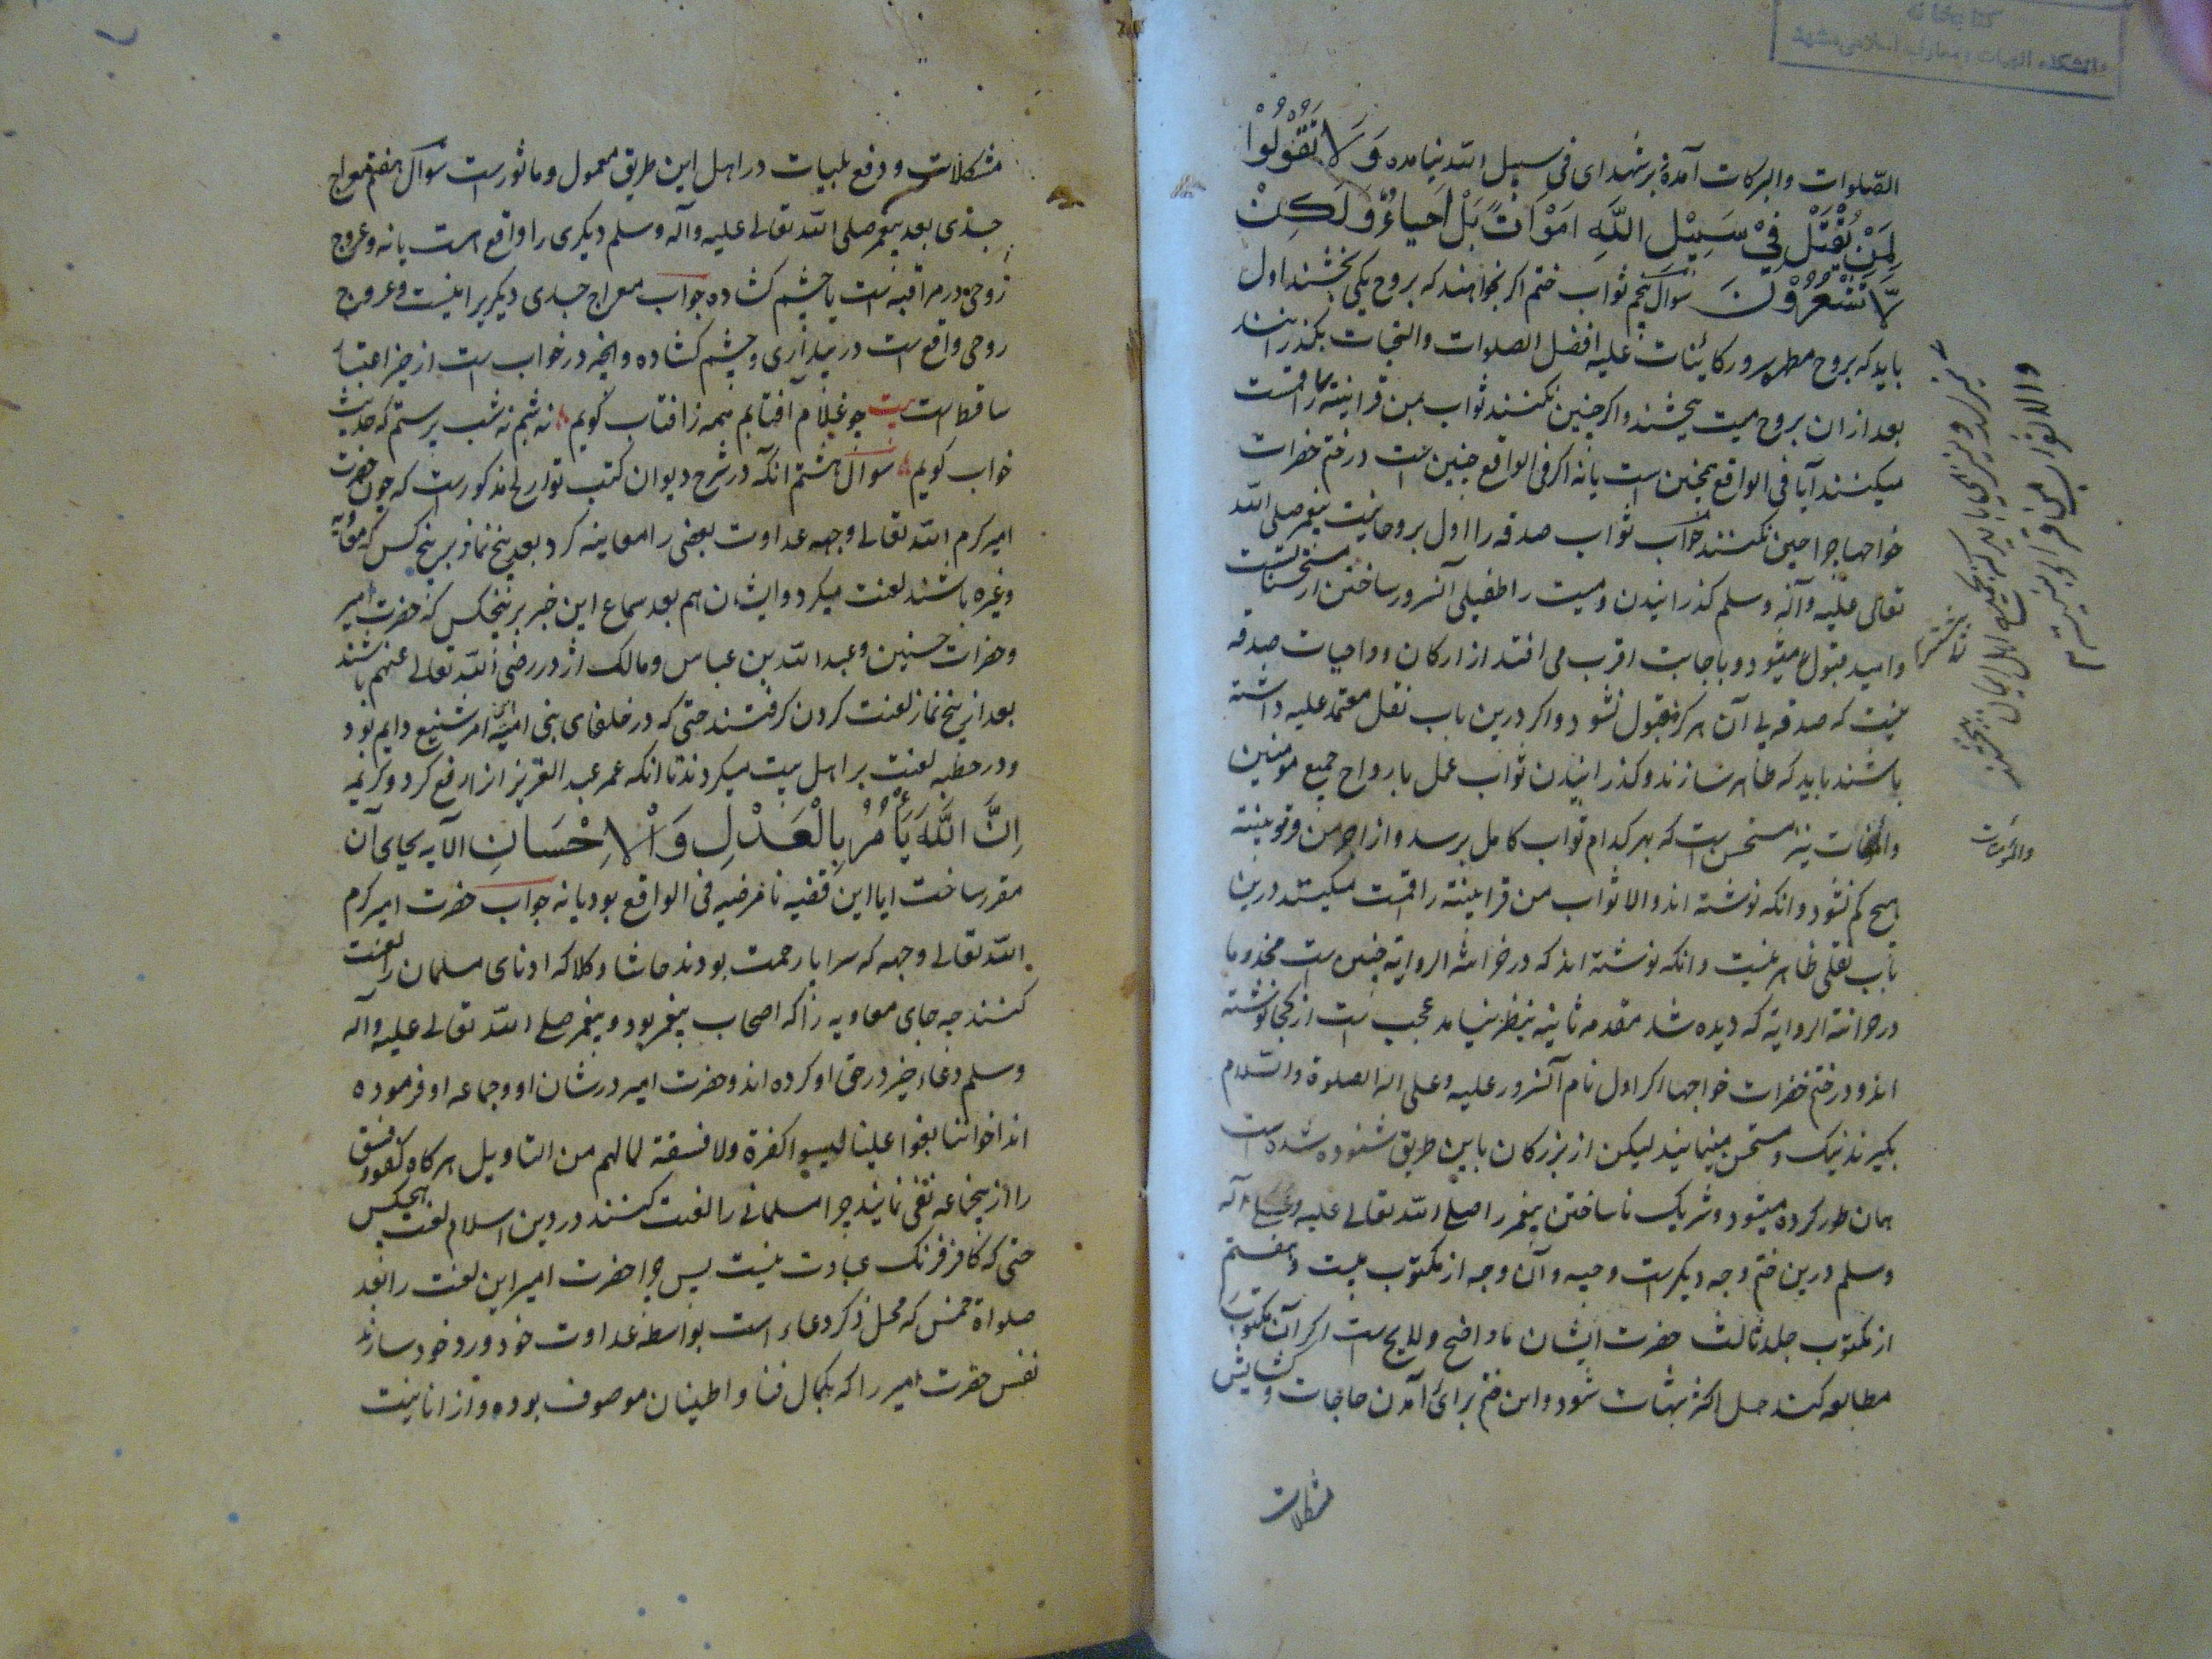 الصّلوات والبرکات آمدهٔ بر شهدای فی سبیل الله نیامده وَلَا تَقُوْلُوْا
لِمَنْ یُّقْتَلُ فِیْ سَبِیْلِ اللَّهِ اَمْوَاتٌ بَلْ اَحیاءٌ وَّلَکِنْ
لَّا تَشْعُرُوْنَ سوال پنجم ثواب ختم اکر بخواهند که بروح یکی بخشند اول
باید که بروح مطهر سرور کائنات علیه افضل الصلوات والتحیات بکذرانند
بعد ازان بروح میت بخشند واکر چنین نکنند ثواب من قرابیته را قسمت
میکنند آیا فی الواقع همچنین است یا نه اکر فی الواقع چنین است در ختم حضرات
خواجها چرا چنین نکنند جواب ثواب صدقه را اول بروحانیت پیغمبر صلی الله
تعالی علیه وآله وسلم کذرانیدن ومیت را طفیلی آنسرور ساختن از مستحسنات است
وامید قبول میشود وباجابت اقرب می افتد از ارکان وواجبات صدقه
نیست که صدقه بی آن هرکز مقبول نشود واکر درین باب نقل معتمد علیه داشته
باشند باید که ظاهر سازند وکذرانیدن ثواب عمل بارواح جمیع مومنین
نیز مستحسن است که بهر کدام ثواب کامل برسد واز اجر من نویسته
هیچ کم نشود وانکه نوشته اند والا ثواب من قرابیته را قسمت میکنند درین
باب نقلی ظاهر نیست وانکه نوشته اند که در خزانة الروایة چنین است مخدوما
در خزانة الروایة که دیده شد مقدمه ثانیه بنظر نیامد عجب است از کجا نوشته
اند ودر ختم حضرات خواجها اکر اول نام آنسرور علیه وعلی اله الصلوة والسلام
بکیرند نیک ومستحسن مینماید لیکن از بزرکان باین طریق شنوده شده است
همان طور کرده میشود وشریک ناساختن پیغمبر را صلی الله تعالی علیه وعلی آله
وسلم درین ختم وجه دیکرست وجیه وآن وجه از مکتوب بیست وهفتم
از مکتوب جلد ثالث حضرت ایشان ما واضح ولایح است اکر آن مکتوب
مطالعه کنند حل اکثر شبهات شود واین ختم برای آمدن حاجات وکشایش
مشکلات
والمؤمنات
مشکلات ودفع بلیات در اهل این طریق معمول وماثورست سوال هفتم معراج
جسدی بعد پیغمبر صلی الله تعالی علیه وآله وسلم دیکری را واقع است یا نه وعروج
روحی در مراقبه است یا چشم کشاده جواب معراج جسدی دیکریرا نیست وعروج
روحی واقع است در بیداری وچشم کشاده وانچه در خواب است از حیز اعتبار
ساقط است بیت چو غلام آفتابم همه ز افتاب کویم نه شبم نه شب پرستم که حدیث
خواب کویم سوال هشتم انکه در شرح دیوان کتب تواریخ مذکورست که چون حضرت
امیر کرم الله تعالی وجهه عداوت بعضی را معاینه کرد بعد پنج نماز بر پنج کس که معاویه
وغیره باشند لعنت میکرد وایشان هم بعد سماع این خبر بر پنجکس که حضرت امیر
وحضرات حسنین وعبد الله بن عباس ومالک اژدر رضی الله تعالی عنهم باشند
بعد از پنج نماز لعنت کردن کرفتند حتی که در خلفای بنی امیه این امر شنیع دایم بود
ودر خطبه لعنت بر اهل بیت میکردند تا انکه عمر عبد العزیز انرا رفع کرد وکریمه
اِنَّ اللَّهَ یَأْمُرُ بِالْعَدْلِ وَالْاِحْسَانِ الآیه بجای آن
مقرر ساخت ایا این قضیه نامرضیه فی الواقع بود یا نه جواب حضرت امیر کرم
الله تعالی وجهه که سراپا رحمت بودند حاشا وکلا که ادنای مسلمان را لعنت
کنند چه جای معاویه را که اصحاب پیغمبر بود وپیغمبر صلی الله تعالی علیه وآله
وسلم دعاء خیر در حق او کرده اند وحضرت امیر در شان او وجماعه او فرموده
اند اخواننا بغوا علینا لیسوا کفرة ولا فسقة لما لهم من التاویل هرکاه کفر وفسق
را از ینجماعه نفی نمایند چرا مسلمانی را لعنت کنند در دین اسلام لعنت هیچکس
حتی که کافر فرنک عبادت نیست پس چرا حضرت امیر این لعنت را بعد
صلواة خمس که محل ذکر ودعاء است بواسطه عداوت خود ورد خود سازند
نفس حضرت امیر را که بکمال فنا واطینان موصوف بوده واز انانیت